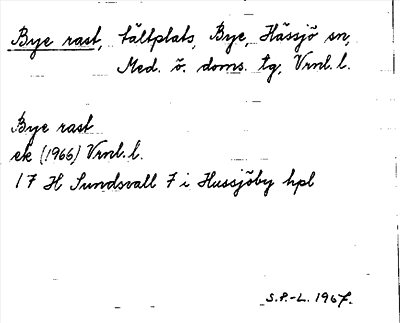 Bye rast, tältplats, Bye, Hässjö sn,
Med. ö. doms. tg, Vrnl. l.
Bye rast
ek (1966) Vrnl. l.
17 H Sundsvall 7 i Hussjöby hpl
S.P.-L. 1967.